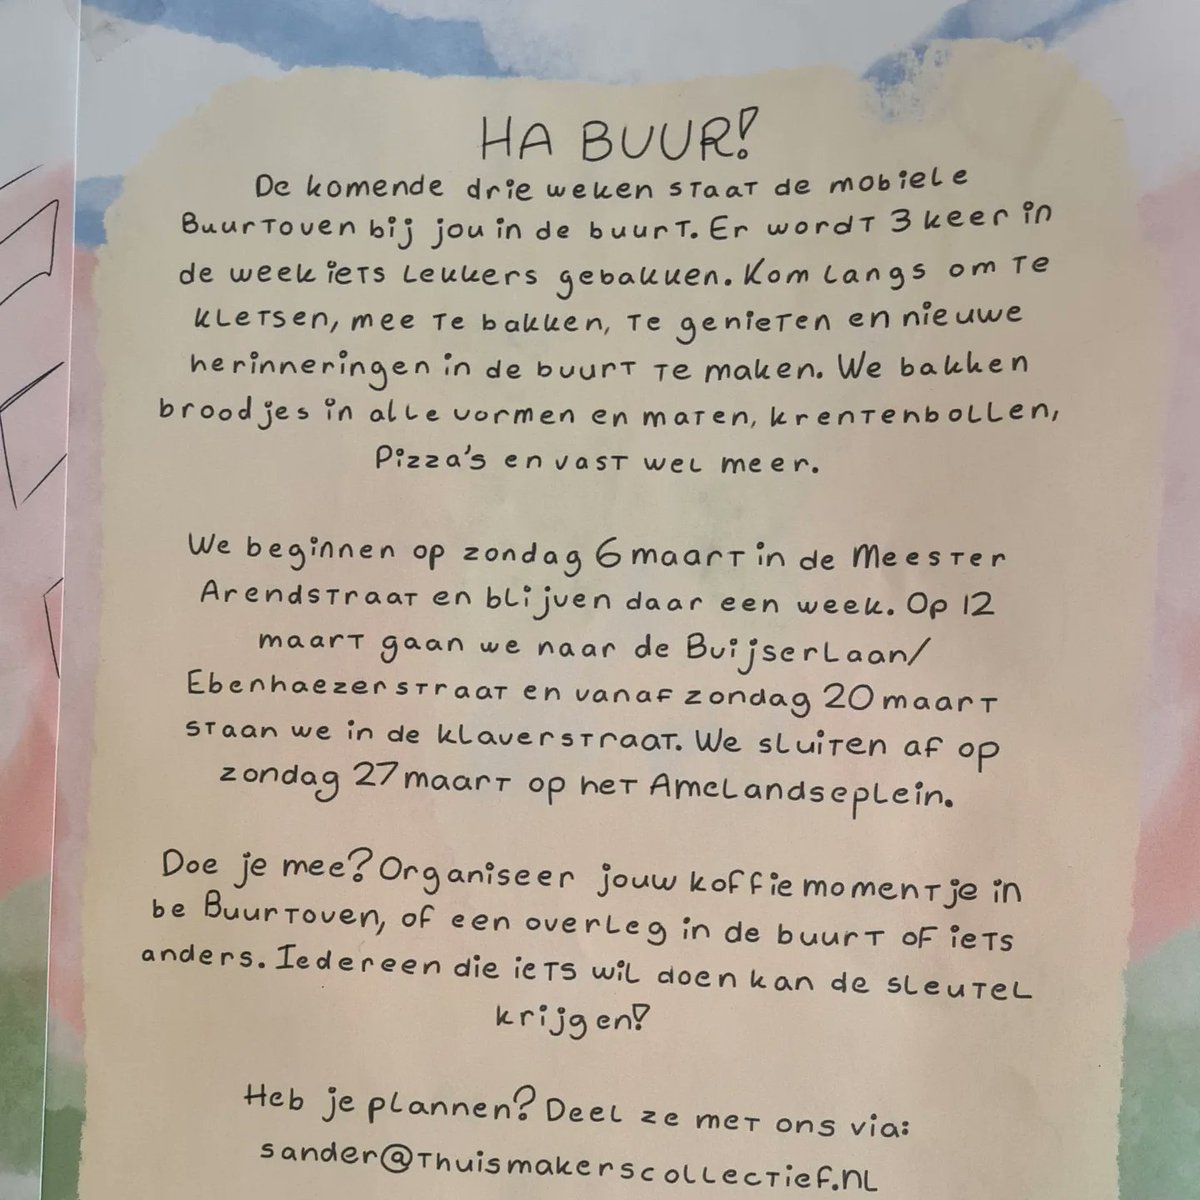 HA BUUR!
De komende drie weken staat de mobiele
Buurtoven bij jou in de buurt. Er wordt 3 keer in
de week iets lekkers gebakken. Kom langs om te
kletsen, mee te bakken, te genieten en nieuwe
herinneringen in de buurt te maken. We bakken
broodjes in alle vormen en maten, krentenbollen,
Pizza's en vast wel meer.
We beginnen op zondag 6 maart in de Meester
Arendstraat en blijven daar een week. Op 12
maart gaan we naar de Buijserlaan/
Ebenhaezerstraat en vanaf zondag 20 maart
staan we in de klaverstraat. We sluiten af op
zondag 27 maart op het Amelandseplein.
Doe je mee? Organiseer jouw koffiemomentje in
be Buurtoven, of een overleg in de buurt of iets
anders. Iedereen die iets wil doen kan de sleutel
krijgen!
Heb je plannen? Deel ze met ons via:
sander@thuismakerscollectief.nl